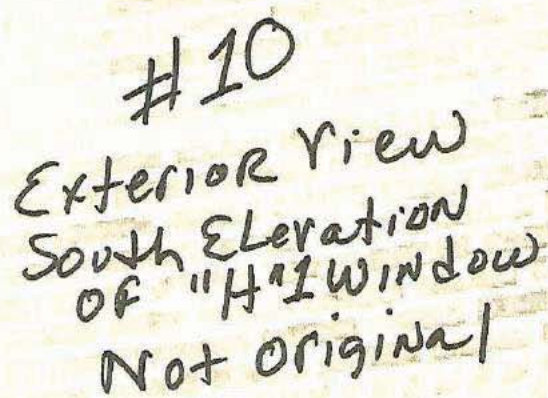 #10
Exterior View
South Elevation
of "H"1 Window
Not Original